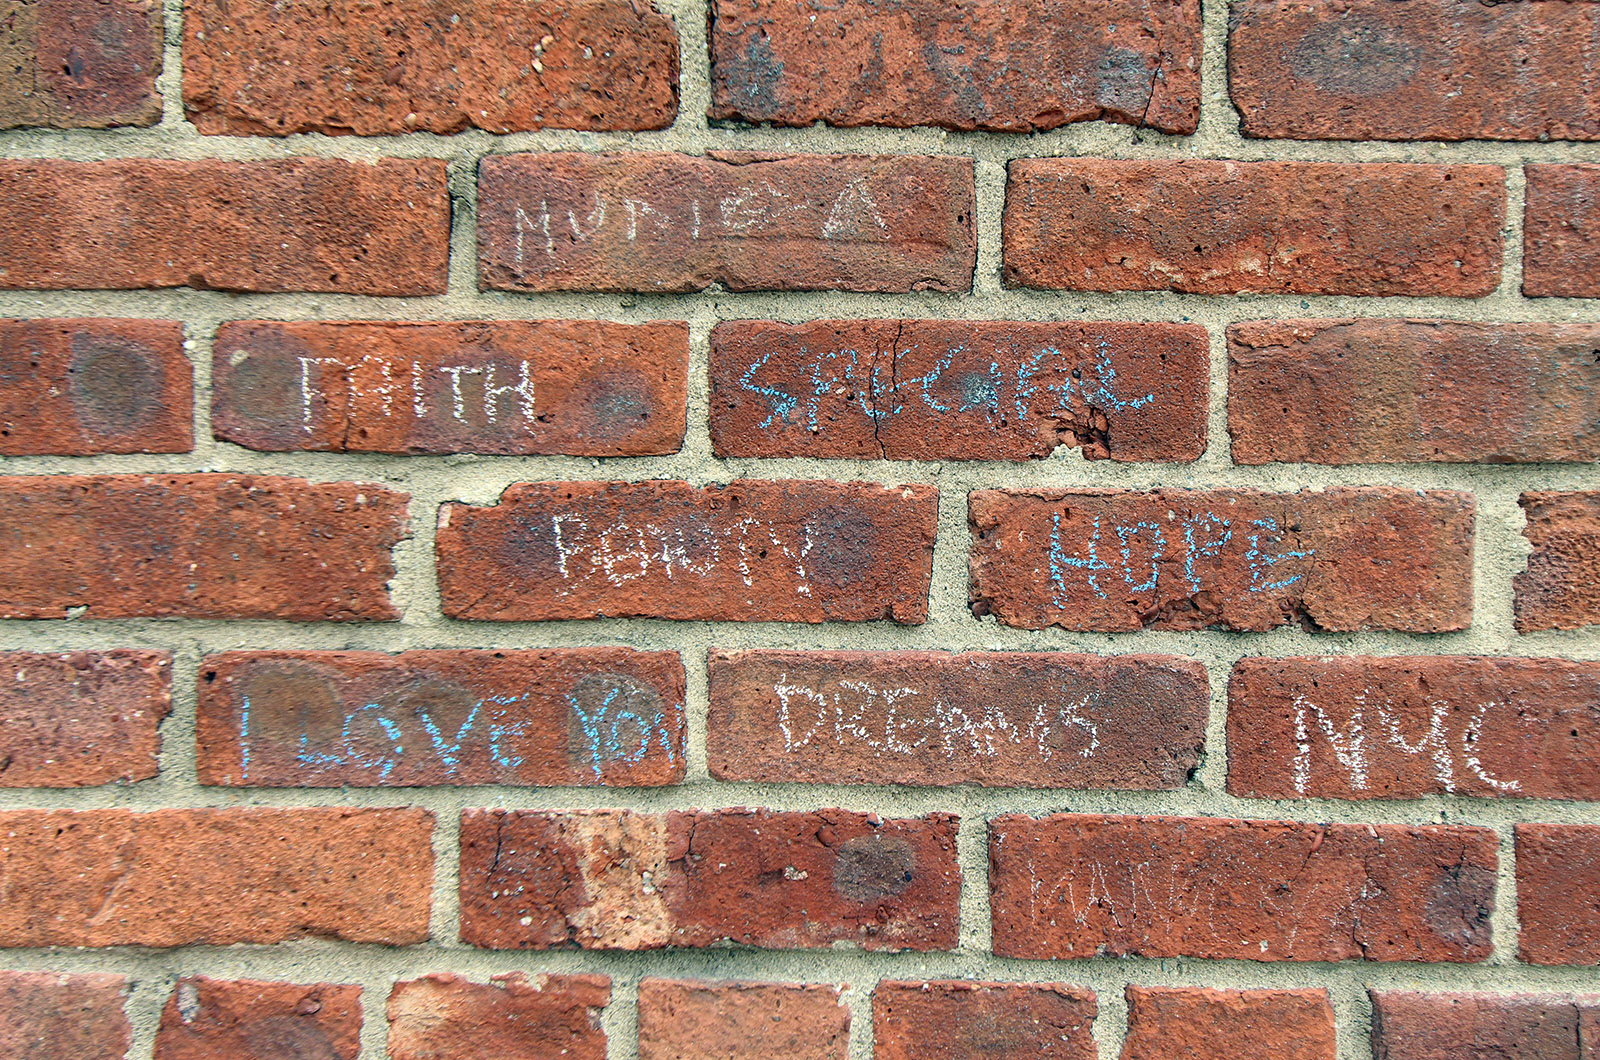 FAITH
SPECIAL
BEAUTY
HOPE
I LOVE YOU
DREAMS
NYC